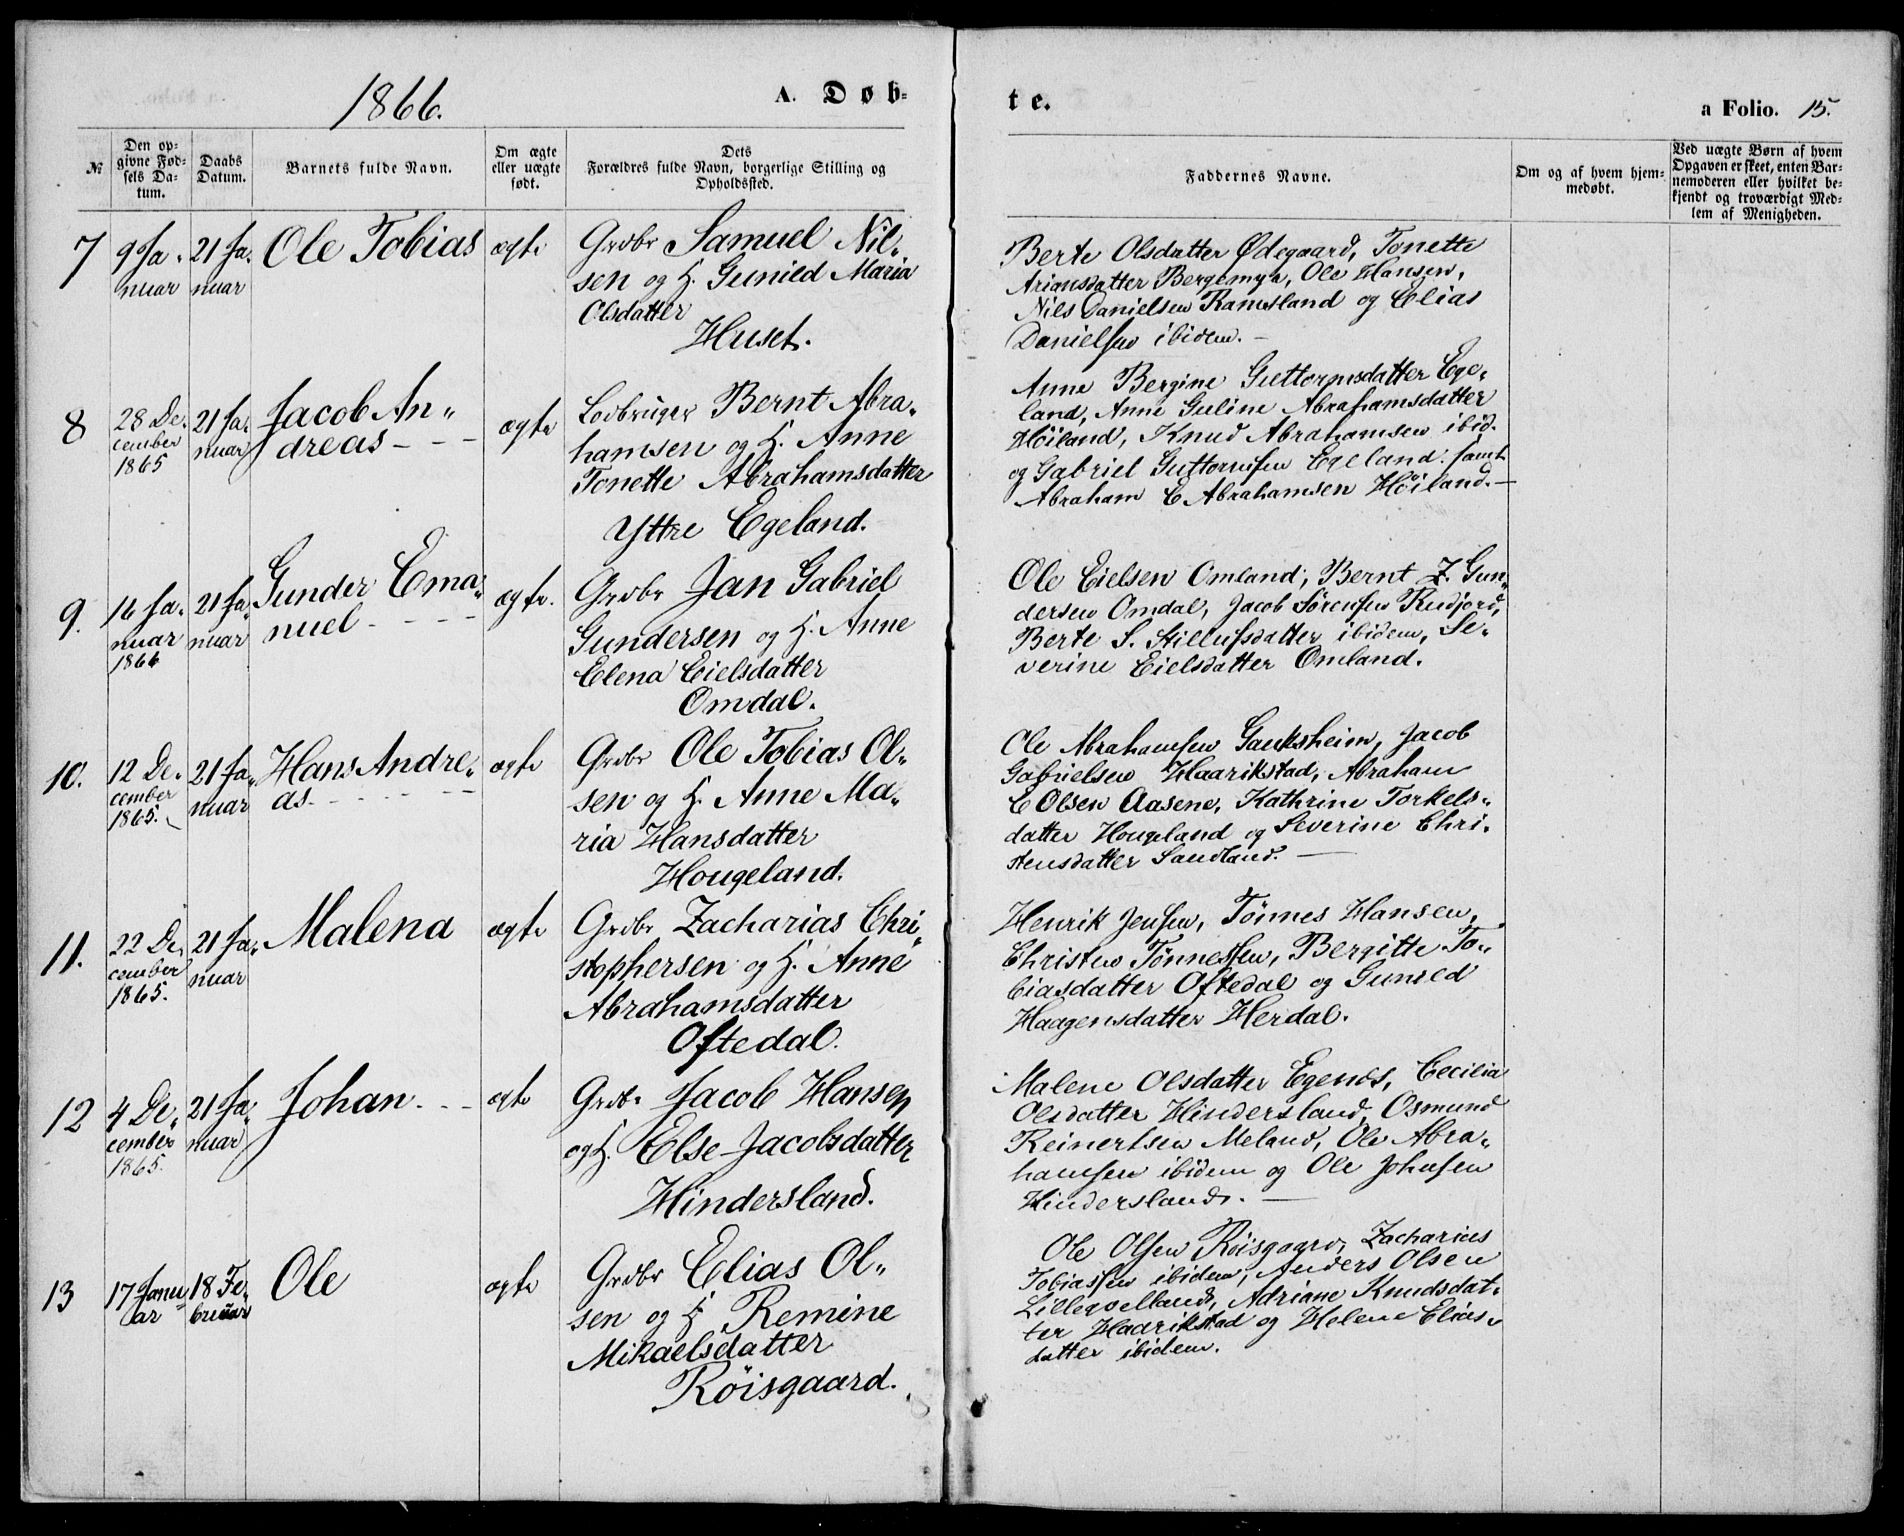 1866.
A. Døb-
te.
a Folio. 15.
№
Den op-
givne Fød-
sels Da-
tum.
Daabs
Datum.
Barnets fulde Navn.
Om ægte
eller uægte
født.
Dets
Forældres fulde Navn, borgerlige Stilling og
Opholdssted.
Faddernes Navne.
Om og af hvem hjem-
medøbt.
Ved uægte Børn af hvem
Opgaven er skeet, enten Bar-
nemoderen eller hvilket be-
kjendt og troværdigt Med-
lem af Menigheden.
7
9 Ja-
nuar
21 Ja-
nuar
Ole Tobias
ægte
Grdbr Samuel Nil-
sen og H. Gunild Maria
Olsdatter
Huset.
Berte Olsdatter Ødegaard, Tonette
Ariansdatter Bergemyr, Ole Hansen,
Nils Danielsen Ramsland og Elias
Danielsen ibidem. -
8
28 De-
cember
1865
21 Ja-
nuar
Jacob An-
dreas - - -
ægte
Lodbruger Bernt Abra-
hamsen og H. Anne
Tonette Abrahamsdatter
Yttre Egeland.
Anne Bergine Guttormsdatter Ege-
land, Anne Guline Abrahamsdatter
Høiland, Knud Abrahamsen ibid.
og Gabriel Guttormsen Egeland samt
Abraham C Abrahamsen Høiland. -
9.
16 Ja-
nuar
1866
21 Ja-
nuar
Gunder Ema-
nuel - - - -
ægte.
Grdbr Jan Gabriel
Gundersen og H. Anne
Elena Eielsdatter
Omdal.
Ole Eielsen Omland, Bernt Z. Gun-
dersen Omdal, Jacob Sørensen Rudjord,
Berte S. Stillufsdatter ibidem, Se-
verine Eielsdatter Omland.
10.
12 De-
cember
1865.
21 Ja-
nuar
Hans Andre-
as - - - - -
ægte
Grdbr Ole Tobias Ol-
sen og H. Anne Ma-
ria Hansdatter
Hougeland.
Ole Abrahamsen Gauksheim, Jacob
Gabrielsen Haarikstad, Abraham
C Olsen Aasene, Kathrine Torkels-
datter Hougeland og Severine Chri-
stensdatter Sandland. -
11.
22 De-
cember
1865.
21 Ja-
nuar
Malena
ægte
Grdbr Zacharias Chri-
stophersen og H. Anne
Abrahamsdatter
Oftedal.
Henrik Jensen, Tønnes Hansen,
Christen Tønnessen, Bergitte To-
biasdatter Oftedal og Gunild
Haagensdatter Herdal.
12
4 De-
cember
1865.
21 Ja-
nuar
Johan - - -
ægte
Grdbr Jacob Hansen
og H. Else Jacobsdatter
Hindersland.
Malene Olsdatter Egends, Cecilia
Olsdatter Hindersland, Osmund
Reinertsen Meland, Ole Abra-
hamsen ibidem og Ole Johnsen
Hindersland. -
13
17 Janu-
ar
18 Fe-
bruar
Ole
ægte
Grdbr Elias Ol-
sen og H Remine
Mikaelsdatter
Röisgaard.
Ole Olsen Röisgaard, Zacharias
Tobiassen ibidem, Anders Olsen
Lillegvelland, Adriane Knudsdat-
ter Haarikstad og Helene Elias-
datter ibidem.